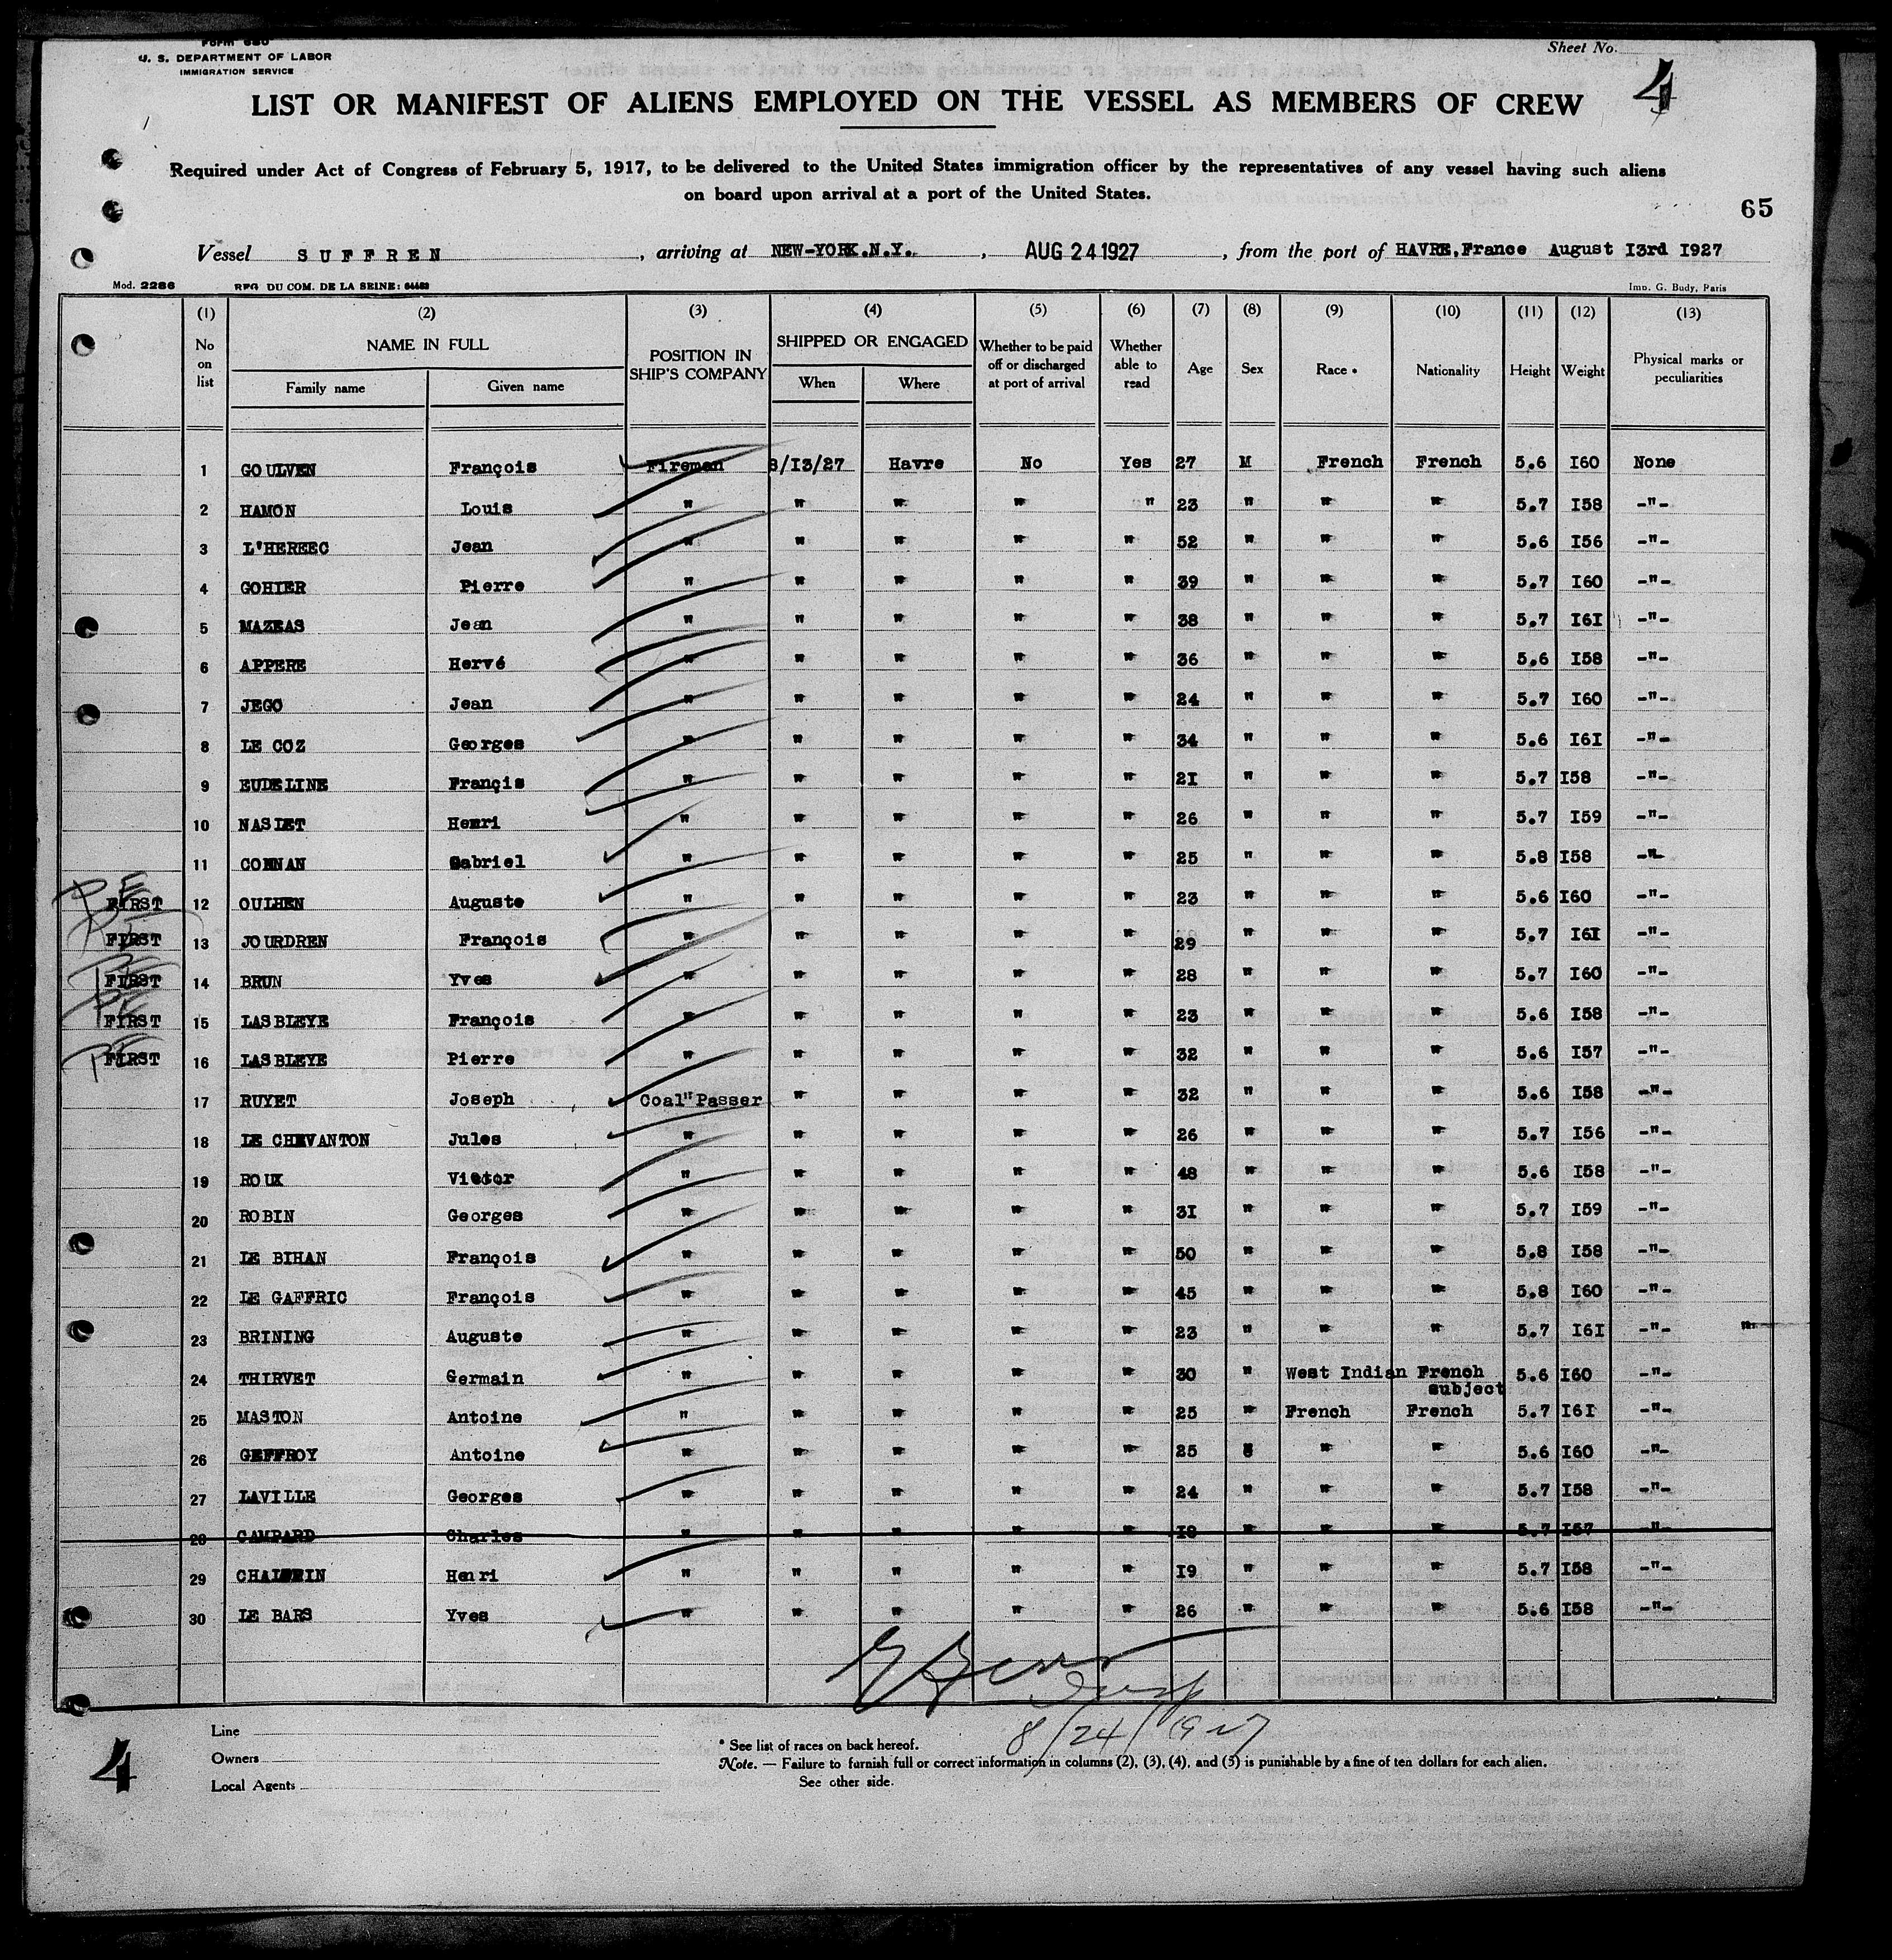 Form 680
U. S. DEPARTMENT OF LABOR
IMMIGRATION SERVICE
Sheet No.
4
LIST OR MANIFEST OF ALIENS EMPLOYED ON THE VESSEL AS MEMBERS OF CREW
Required under Act of Congress of February 5, 1917, to be delivered to the United States immigration officer by the representatives of any vessel having such aliens
on board upon arrival at a port of the United States.
65
Vessel SUFFREN , arriving at NEW-YORK.N.Y. , AUG 24 1927 , from the port of HAVRE,France August I3rd I927
Mod. 2286 REG DU COM. DE LA SEINE: 64483 Imp. G. Budy, Paris
(1) (2) (3) (4) (5) (6) (7) (8) (9) (10) (11) (12) (13)
No on list NAME IN FULL Family name Given name POSITION IN SHIP'S COMPANY SHIPPED OR ENGAGED When Where Whether to be paid off or discharged at port of arrival Whether able to read Age Sex Race * Nationality Height Weight Physical marks or peculiarities
1 GOULVEN François Fireman 8/13/27 Havre No Yes 27 M French French 5.6 I60 None
2 HAMON Louis " " " " " 23 " " " 5.7 I58 -"-
3 L'HEREEC Jean " " " " " 52 " " " 5.6 I56 -"-
4 GOHIER Pierre " " " " " 39 " " " 5.7 I60 -"-
5 MAZEAS Jean " " " " " 38 " " " 5.7 I6I -"-
6 APPERE Hervé " " " " " 36 " " " 5.6 I58 -"-
7 JEGO Jean " " " " " 24 " " " 5.7 I60 -"-
8 LE COZ Georges " " " " " 34 " " " 5.6 I6I -"-
9 EUDELINE Françis " " " " " 2I " " " 5.7 I58 -"-
10 NASLET Henri " " " " " 26 " " " 5.7 I59 -"-
11 CONNAN Gabriel " " " " " 25 " " " 5.8 I58 -"-
FIRST 12 OULHEN Auguste " " " " " 23 " " " 5.6 I60 -"-
FIRST 13 JOURDREN François " " " " " 29 " " " 5.7 I6I -"-
FIRST 14 BRUN Yves " " " " " 28 " " " 5.7 I60 -"-
FIRST 15 LASBLEYE François " " " " " 23 " " " 5.6 I58 -"-
FIRST 16 LASBLEYE Pierre " " " " " 32 " " " 5.6 I57 -"-
17 RUYET Joseph Coal"Passer " " " " 32 " " " 5.6 I58 -"-
18 LE CHEVANTON Jules " " " " " 26 " " " 5.7 I56 -"-
19 ROUX Victor " " " " " 48 " " " 5.6 I58 -"-
20 ROBIN Georges " " " " " 3I " " " 5.7 I59 -"-
21 LE BIHAN François " " " " " 50 " " " 5.8 I58 -"-
22 LE GAFFRIC François " " " " " 45 " " " 5.8 I60 -"-
23 BRINING Auguste " " " " " 23 " " " 5.7 I6I -"- "
24 THIRVET Germain " " " " " 30 " West Indian French subject 5.6 I60 -"-
25 MASTON Antoine " " " " " 25 " French French 5.7 I6I -"-
26 GEFFROY Antoine " " " " " 25 " " " 5.6 I60 -"-
27 LAVILLE Georges " " " " " 24 " " " 5.7 I58 -"-
28 CAMPARD Charles " " " " " " " " 5.7 I57 -"-
29 Henri " " " " " I9 " " " 5.7 I58 -"-
30 LE BARS Yves " " " " " 26 " " " 5.6 I58 -"-
8/24/1927
4
Line
Owners
Local Agents
* See list of races on back hereof.
Note. — Failure to furnish full or correct information in columns (2), (3), (4), and (5) is punishable by a fine of ten dollars for each alien.
See other side.